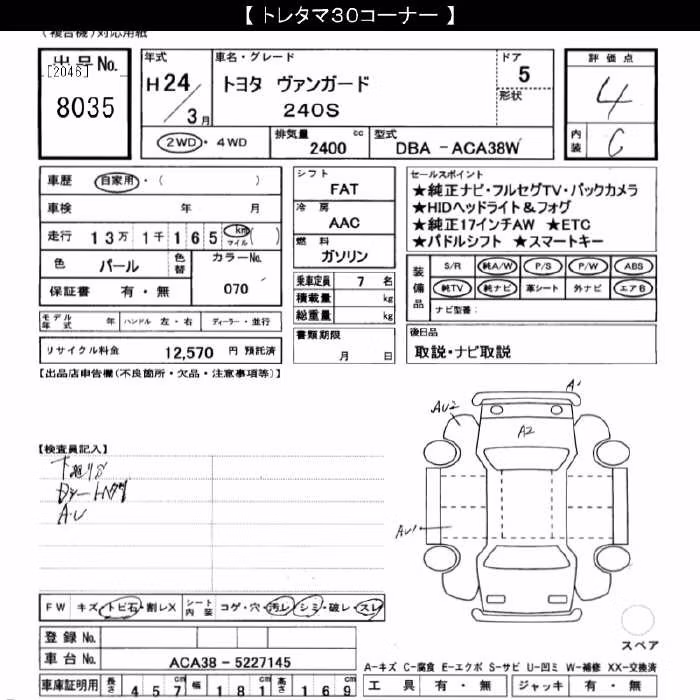 【 トレタマ30コーナー 】
(複合機)対応用紙
出品No.
[2046]
8035
年式
H24/3月
車名・グレード
トヨタ ヴァンガード
240S
ドア
5
形状
2WD・4WD
排気量
2400 cc
型式
DBA - ACA38W
評価点
4
内装
C
車歴 自家用・( )
車検 年 月
走行 13万1千165 km マイル ( )
色 パール 色替
カラーNo.
070
保証書 有・無
モデル年式 年 ハンドル 左・右 ディーラー・並行
リサイクル料金 12,570 円 預託済
シフト
FAT
冷房
AAC
燃料
ガソリン
乗車定員 7 名
積載量 kg
総重量 kg
書類期限
月 日
セールスポイント
★純正ナビ・フルセグTV・バックカメラ
★HIDヘッドライト&フォグ
★純正17インチAW ★ETC
★パドルシフト ★スマートキー
装備品
S/R 純A/W P/S P/W ABS
純TV 純ナビ 革シート 外ナビ エアB
ナビ型番:
後日品
取説・ナビ取説
【出品店申告欄(不良箇所・欠品・注意事項等)】
【検査員記入】
A・U
A1
AU2
A2
AU1
FW キズ・トビ石・割レX シート内装 コゲ・穴・汚レ・シミ・破レ・スレ
登録No.
車台No. ACA38 - 5227145
車庫証明用 長さ 457 幅 181 高さ 169
スペア
A-キズ C-腐食 E-エクボ S-サビ U-凹ミ W-補修 XX-交換済
工具 有・無 ジャッキ 有・無